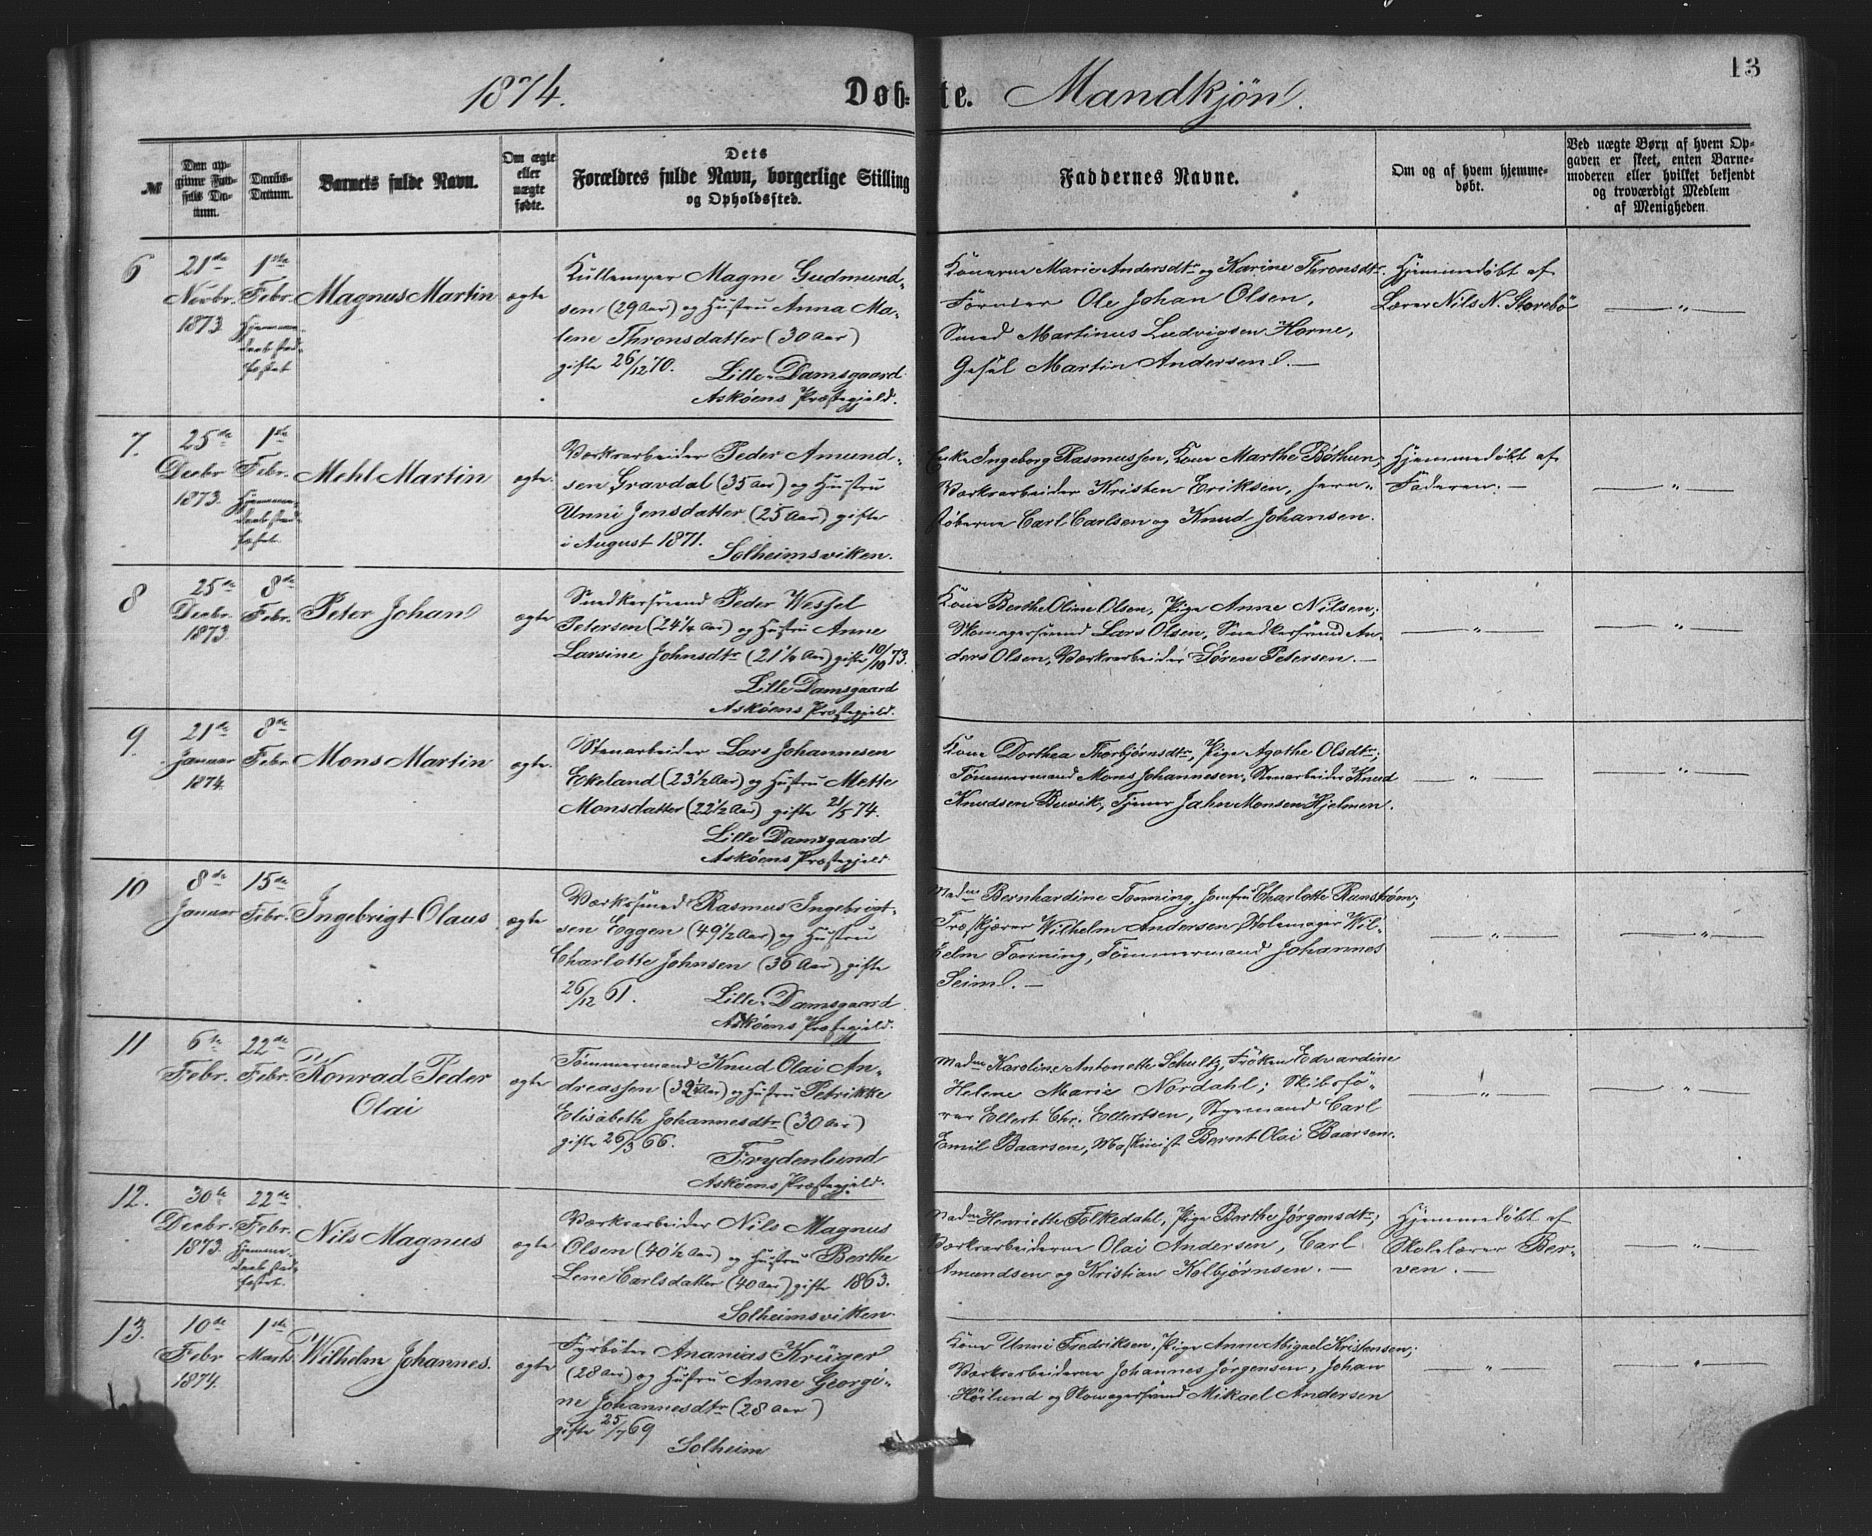 1874.
Døb-te. Mandkjön.
13
№
Den opgivne Fødsels Datum.
Daabs-Datum.
Barnets fulde Navn.
Om ægte eller uægte fødte.
Dets Forældres fulde Navn, borgerlige Stilling og Opholdssted.
Faddernes Navne.
Om og af hvem hjemmedøbt.
Ved uægte Børn af hvem Opgaven er skeet, enten Barnemoderen eller hvilket bekjendt og troværdigt Medlem af Menigheden.
6
21de Novbr. 1873
1ste Febr. Hjemmedaab stadfæstet
Magnus Martin
ægte
Magne Gudmund-
sen (29 Aar) og Hustru Anna Ma-
lene Thronsdatter (30 Aar)
gifte 26/12 70. Lille-Damsgaard
Askøens Præstegjeld.
Konerne Marie Andersdtr og Karine Thronsdtr
Ole Johan Olsen,
Smed Martinus Ludvigsen Horne,
Martin Andersen. —
Hjemmedøbt af
Lærer Nils N. Storebö
— „ —
7.
25de Decbr 1873.
1ste Febr. Hjemmedaab stadfæstet.
Mehl Martin
ægte.
Værkarbeider Peder Amund-
sen Gravdal (35 Aar) og Hustru
Unni Jensdatter (25 Aar) gifte
i August 1871. Solheimsviken.
Enke Ingeborg Rasmussen, Kone Marthe Böthun,
Værkarbeider Kristen Eriksen, Jern-
støberne Carl Carlsen og Knud Johansen.
Hjemmedöbt af
Faderen. —
— „ —
8
25de Decbr. 1873.
8de Febr.
Peter Johan
ægte
Snedkersvend Peder Wessel
Petersen (24¼ Aar) og Hustru Anne
Larsine Johnsdtr (21½ Aar) gifte 10/10 73.
Lille Damsgaard
Askøens Præstegjeld.
Kone Berthe Oline Olsen, Pige Anne Nilsen,
Skomagersvend Lars Olsen, Snedkersvend An-
ders Olsen, Værkarbeider Søren Petersen. —
— „ —
— „ —
9.
21de Januar 1874.
8de Febr.
Mons Martin
ægte.
Stenarbeider Lars Johannesen
Ekeland (23½ Aar) og Hustru Mette
Monsdatter (22½ Aar) gifte 21/5 74.
Lille Damsgaard
Askøens Præstegjeld
Kone Dorthea Thorbjørnsdtr, Pige Agothe Olsdtr,
Tømmermand Mons Johannesen, Stenarbeider Knud
Knudsen Buvik, Tjener Jahn Monsen Hjelmen.
— „ —
— „ —
10
8de Januar
15de Febr.
Ingebrigt Olaus
ægte
Værksmed Rasmus Ingebrigt-
sen Eggen (49½ Aar) og Hustru
Charlotte Johnsen (36 Aar) gifte
26/12 61. Lille-Damsgaard
Askøens Præstegjeld.
Madm Bernhardine Tonning, Jomfru Charlotte Runström,
Træskjærer Wilhelm Andersen, Stolemager Wil-
helm Tonning, Tömmermand Johannes
Seim. —
— „ —
— „ —
11
6te Febr.
22de Febr.
Konrad Peder
Olai
ægte
Tømmermand Knud Olai An-
dreassen (39½ Aar) og Hustru Petrikke
Elisabeth Johannesdtr (30 Aar)
gifte 26/3 66.
Frydenlund
Askøens Præstegjeld.
Madm Karoline Antonette Schultz, Frøken Edvardine
Helene Marie Nordahl; Skibsfö-
rer Ellert Chr. Ellertsen, Styrmand Carl
Emil Baarsen, Maskinist Bernt Olai Baarsen.
— „ —
— „ —
12.
30te Decbr. 1873.
22de Febr. Hjemmedaab stadfæstet.
Nils Magnus
ægte
Værkarbeider Nils Magnus
Olsen (40½ Aar) og Hustru Berthe
Lene Carlsdatter (40 Aar) gifte 1863.
Solheimsviken.
Madm Henriette Folkedahl, Pige Berthe Jörgensdtr;
Værkarbeiderne Olai Andersen, Carl
Amundsen og Kristian Kolbjørnsen. —
Hjemmedøbt af
Skolelærer Ber-
ven. —
— „ —
13.
10de Febr 1874.
1ste Marts
Wilhelm Johannes.
ægte
Fyrböter Ananias Krüger
(28 Aar) og Hustru Anne Georgi-
ne Johannesdtr (28 Aar)
gifte 25/7 69
Solheim
Kone Unni Fredriksen, Pige Anne Abigael Kristensen;
Værkarbeiderne Johannes Jørgensen, Johan
Höilund og Skomagersvend Mikael Andersen
— „ —
— „ —